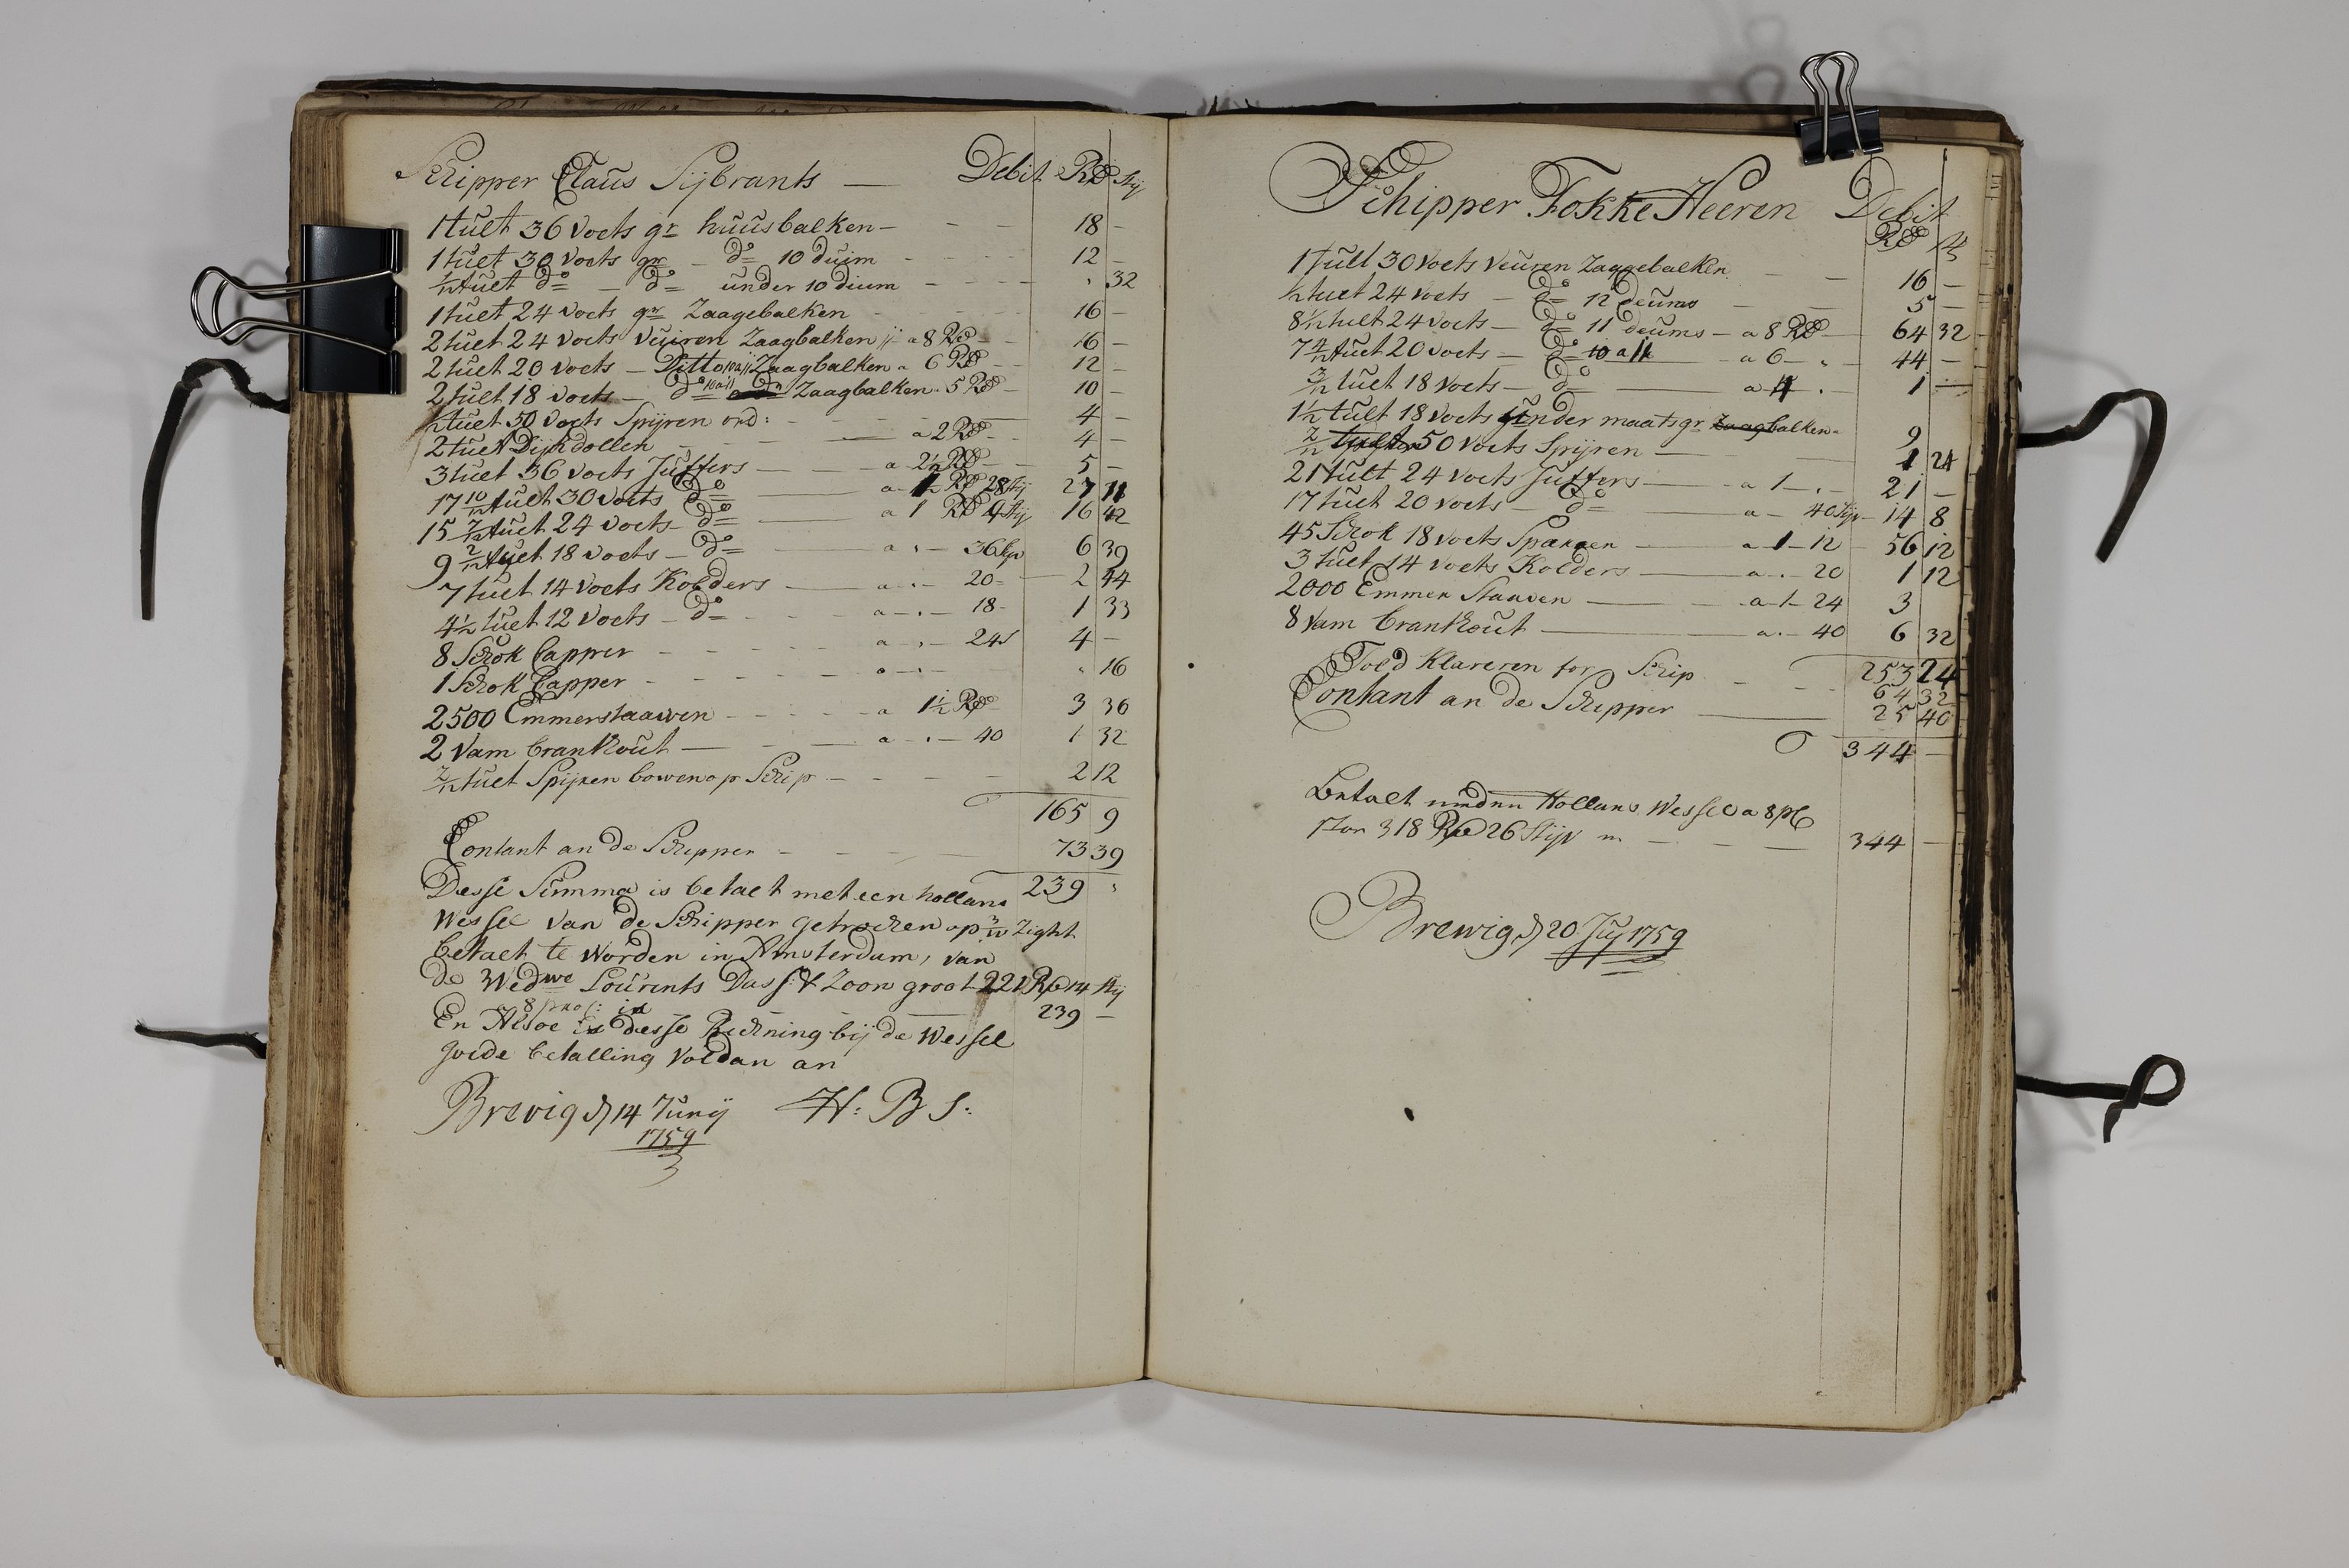 Schipper Claus Sijbrants — Debit Rd Stij
1 tult 36 voets gr huusbalken — 18 —
1 tult 30 voets gr — do 10 duim 12 —
1/12 tult do — do under 10 dium 32
1 tult 24 voets gr Zaagebalken 16 —
2 tult 24 voets Veuren Zaagbalken a 8 Rd 16 —
2 tult 20 voets — Ditto 10 a 11 Zaagbalken a 6 Rd 12 —
2 tult 18 voets — do 10 a 11 Zaagbalken 5 Rd 10 —
1/2 tult 50 voets Spijren ord: 4 —
2 tult Dijkdollen a 2 Rd 4 —
3 tult 36 voets Juffers — a 2 1/2 Rd 5 —
17 10/12 tult 30 voets do — a 1 1/2 Rd 28 Stij 27 11
15 7/12 tult 24 voets do — a 1 Rd 4 Stij 16 42
9 2/12 tult 18 voets — do a — 36 6 39
7 tult 14 voets Kolders — a — 20 — 2 44
4 1/2 tult 12 voets — do a — 18 1 33
8 Schok Capper a — 24 4 —
1 Schok Capper 16
2500 Emmerstaawen a 1 1/2 Rd 3 36
2 Vam brankhout — a — 40 1 32
2/12 tult Spijren bowen op Schip 2 12
165 9
Contant an de Schipper 73 39
Desse Summa is betalt met een hollans 239
Wessel van de Schipper getrocken op Zight
betalt te worden in Amsterdam, van
de Wedwe Lourents Dass & Zoon groot 221 Rd 14 Stij
a 8 in 239 —
En Alsoe is desse Rechning bij de Wessel
goide betalling voldan an
Brevig d 14 Junij H: B S:
1759
Schipper Fokke Heeren Debit
Rd St
1 tult 30 voets veuren Zaagebalken 16 —
1/2 tult 24 voets — do 12 deums 5 —
8 1/12 tult 24 voets — do 11 deums — a 8 Rd 64 32
7 4/12 tult 20 voets — do 10 a 11 a 6 — 44 —
3/12 tult 18 voets — do — a 4 1 —
1 1/2 tult 18 voets under maats gr Zaagbalken 9
2/12 tult 50 voets Spijren — 1 24
21 tult 24 voets Juffers — a 1 — 21 —
17 tult 20 voets — do — a — 40 Stij 14 8
45 Schok 18 voets Sparren — a 1 — 12 56 12
3 tult 14 voets Kolders — a — 20 1 12
2000 Emmer Staaven — a 1 — 24 3
8 Vam brankhout — a — 40 6 32
253 24
Told Klareren for Schip 64 32
Contant an de Schipper — 25 40
344 —
Betalt Hollans Wessel a 8
318 Rd 26 Stijv 344 —
Brewig d 20 July 1759